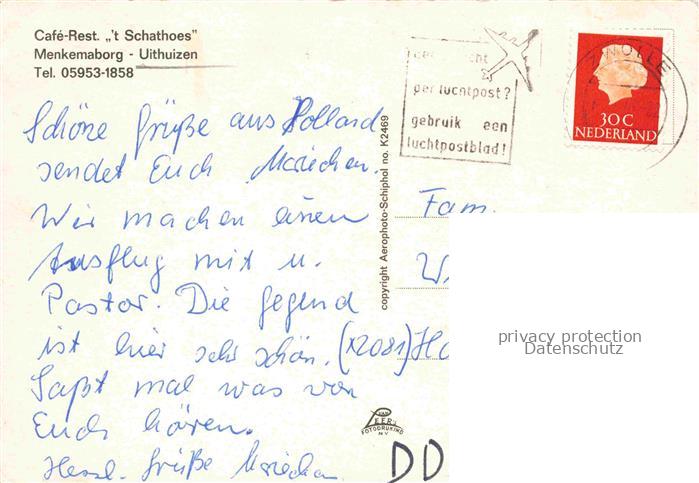 Café-Rest. „'t Schathoes"
Menkemaborg - Uithuizen
Tel. 05953-1858
per luchtpost?
gebruik een
luchtpostblad!
ZWOLLE
30 C
NEDERLAND
Schöne Grüße aus Holland
sendet Euch Mariechen.
Wir machen einen
Ausflug mit u.
Pastor. Die Gegend
ist hier sehr schön.
Laßt mal was von
Euch hören.
Herzl. Grüße Mariechen
copyright Aerophoto-Schiphol no. K2469
Fam.
W
(X2081) Ha
privacy protection
Datenschutz
VAN
LEER'S
FOTODRUKIND
N V
DD